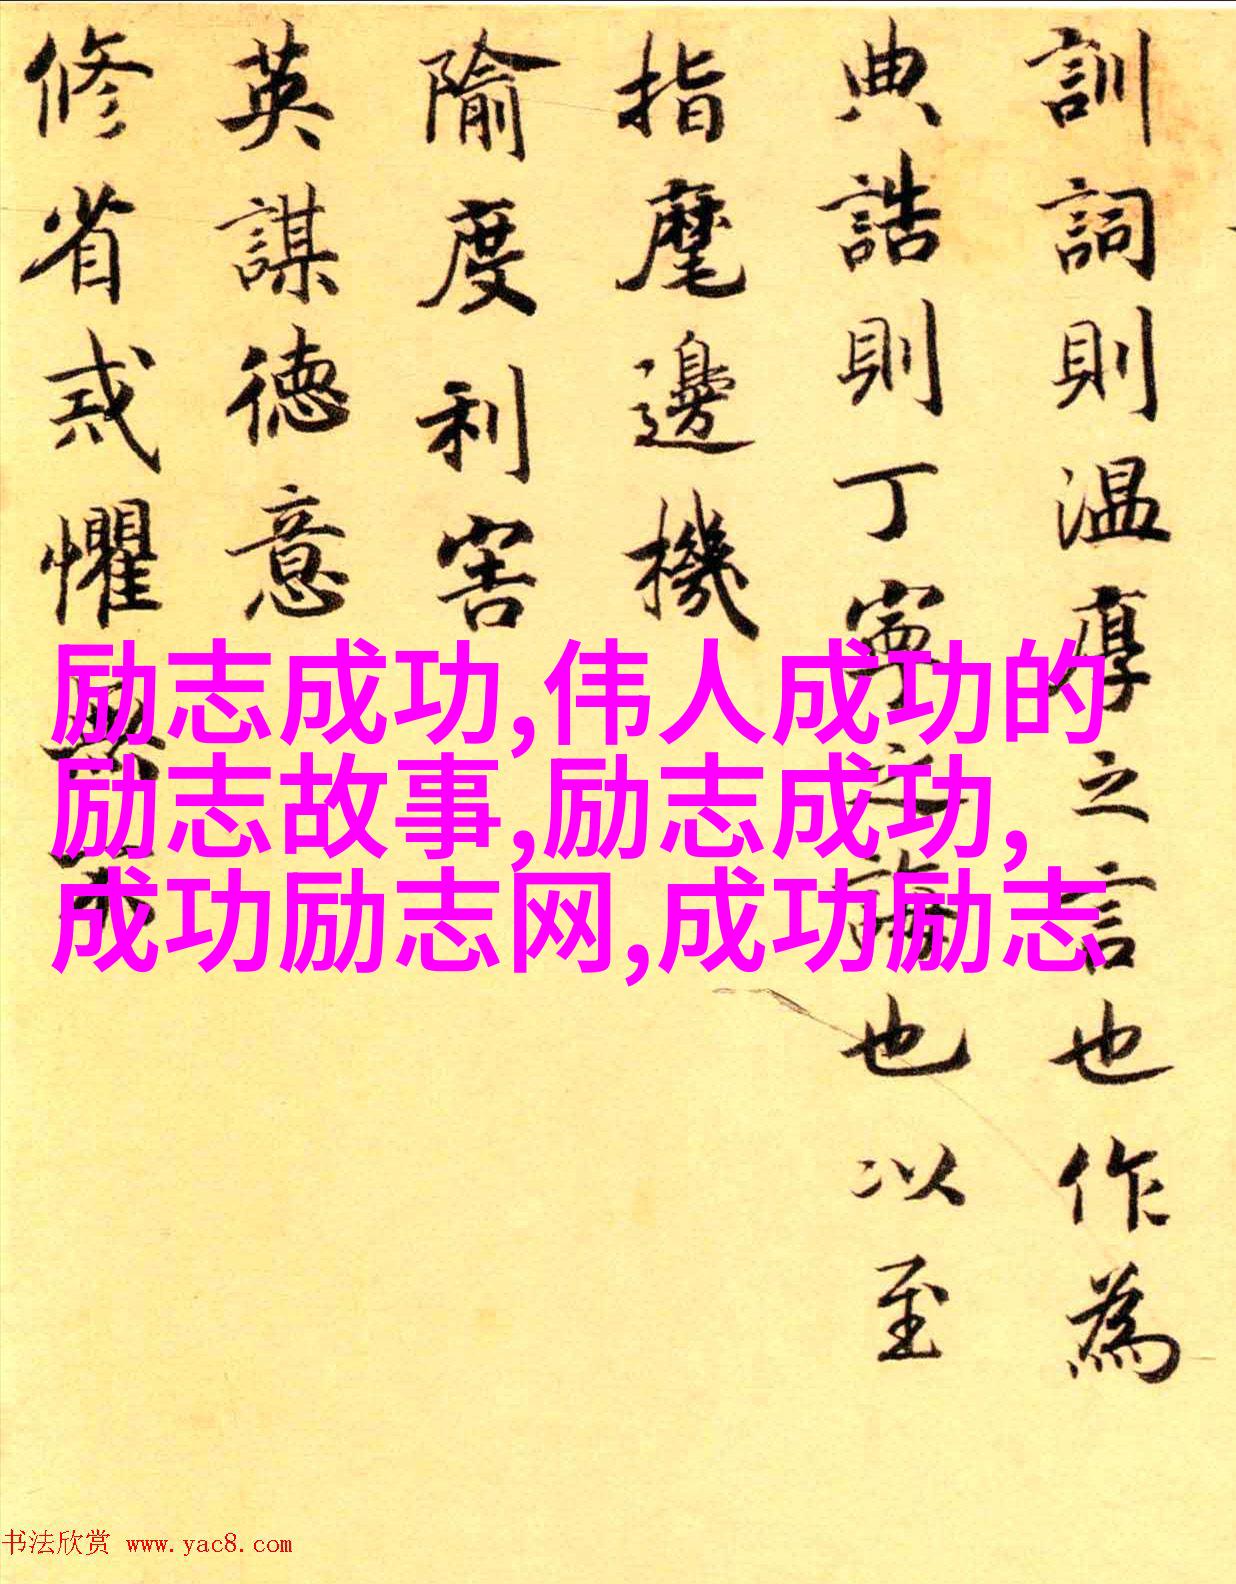 訓詞則温厚之言也作為
典誥則丁寧之誨也以至
指麾邊機
隃度利害
英謀德意
修省戒懼無
励志成功,伟人成功的
励志故事,励志成功,
成功励志网,成功励志
书法欣赏 www.yac8.com